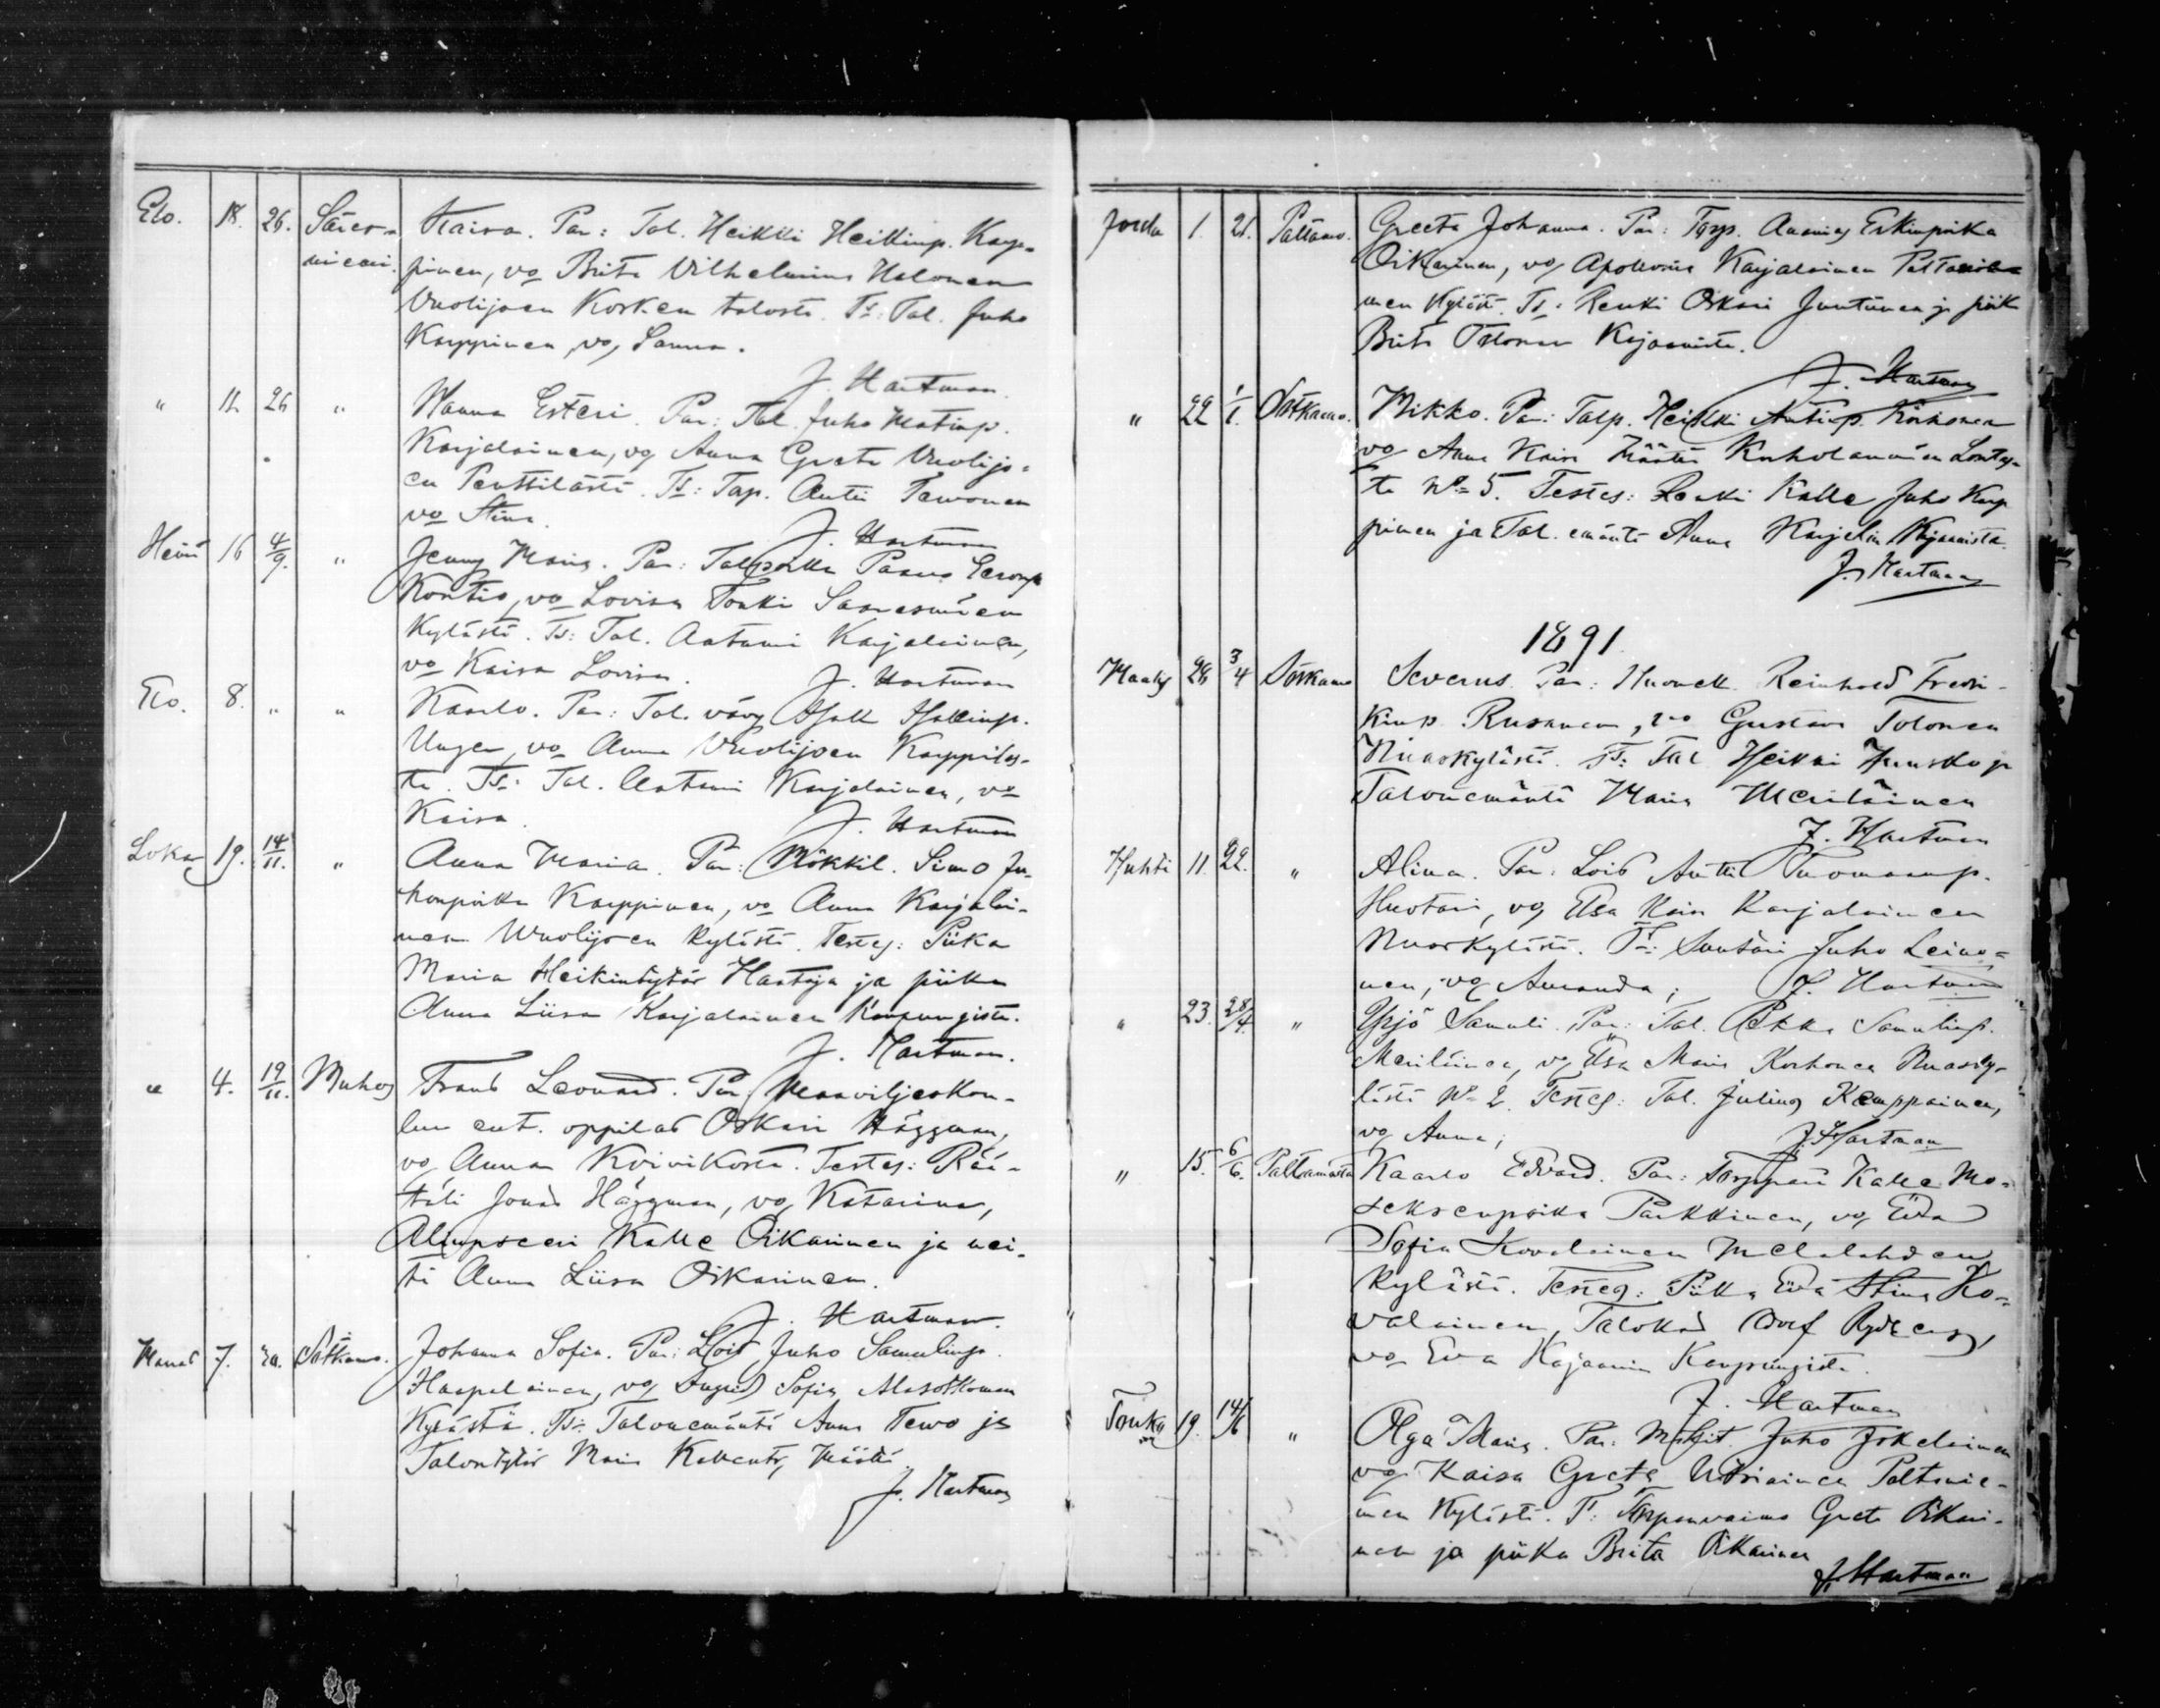 Elo. 18. 26. Säres- Kaisa. Par: Tal. Heikki Heikinp. Karp-
niemi. pinen, vo Brita Vilhelmina Halonen
Vuolijoen Korkea talosta. Ts: Tal. Juho
Karppinen, vo, Sanna.
J. Hartman.
" 12 26 " Hanna Esteri. Par: Tal. Juho Matinp.
Karjalainen, vo Anna Greta Vuolijo-
en Penttilästä. Ts: Tap. Antti Tervonen
vo Stina.
J. Hartman
Heinä 16 4/9. " Jenny Maria. Par: Talpoika Paavo Eeronp
Kontio, vo Lovisa Tonki Saaresmäen
Kylästä. Ts: Tal. Aatami Karjalainen,
vo Kaisa Lovisa. J. Hartman
Elo. 8. " " Kaarlo. Par: Tal. vävy
Unger, vo Anna Vuolijoen Karppilas-
ta. Ts: Tal. Aatami Karjalainen, vo
Kaisa. J. Hartman
Loka 19. 14/11. " Anna Maria. Par: Mökkil. Simo Ju-
honpoika Karppinen, vo Anna Karjalai-
nen Wuolijoen kylästä. Testes: Piika
Maria Heikintytär Haataja ja piika
Anna Liisa Karjalainen Kaupungista.
J. Hartman.
" 4. 19/11. Muhos Frans Leonard. Par Maaviljeskou-
lun ent. oppilas Oskari Häggman,
vo, Anna Koivikosta. Testes: Rää-
täli Jonas Häggman, vo, Katarina,
Kalle Oikarinen ja nei-
ti Anna Liisa Oikarinen.
J. Hartman.
Marras 7. Sotkamo. Johanna Sofia. Par: Lois Juho Samulinp.
Haapalainen, vo, Ingrid Sofia Alasotkamon
Kylästä. Ts: Talonemäntä Anna Tervo ja
Talontytär Maria Määttä.
J. Hartman
Joulu 1. 21. Paltamo. Greeta Johanna. Par: Torp. Ananias Erkinpoika
Oikarinen, vo, Apollonia Karjalainen Paltanie-
men Kylästä. Ts: Renki Oskari Juntunen ja piika
Brita Tolonen Kajaanista.
J. Hartman
" 22 1/1. Sotkamo. Mikko. Par: Talp. Heikki Antinp. Korhonen
vo, Anna Kaisa Määttä Kuholanmäen
ta No 5. Testes: Renki Kalle Juho Karp
pinen ja Tal. emäntä Anna Karjalin Kajaanista.
J. Hartman
1891.
Maalis 28 3/4 Sotkamo Severus. Par: Huonek. Reinhold Fredri-
kinp. Rusanen, vo Gustava Tolonen
Nuaskylästä. Ts: Tal Heikki Huusko ja
Talonemäntä Maria Meriläinen
J. Hartman
Huhti 11. 22. " Alina. Par: Lois Antti Tuomaanp.
Huotari, vo, Elsa Kaisa Karjalainen
Nuaskylästä. Ts: Suutari Juho Leino-
nen, vo, Amanda; J. Hartman
" 23. 28/4. " Yrjö Samuli. Par: Tal. Pekka Samulinp.
Meriläinen, vo, Elsa Maria Korhonen Nuasky-
lästä No 2. Testes: Tal. Julius Kemppainen,
vo, Anna; J. Hartman
" 15. 6/6. Paltamosta Kaarlo Edvard. Par: Torppari Kalle Mo-
seksenpoika Parkkinen, vo, Eva
Sofia Kovalainen Melalahden
kylästä. Testes: Piika Eva Stina Ko-
valainen, Talokas Adolf Rydberg,
vo Eva Kajaanin Kaupungista.
J. Hartman
Touko 19. 14/6 " Olga Maria. Par: Juho Jokelainen
vo, Kaisa Greta Utriainen Paltanie-
men Kylästä. T: Torpanvaimo Greta Oikari-
nen ja piika Brita Oikarinen
J. Hartman